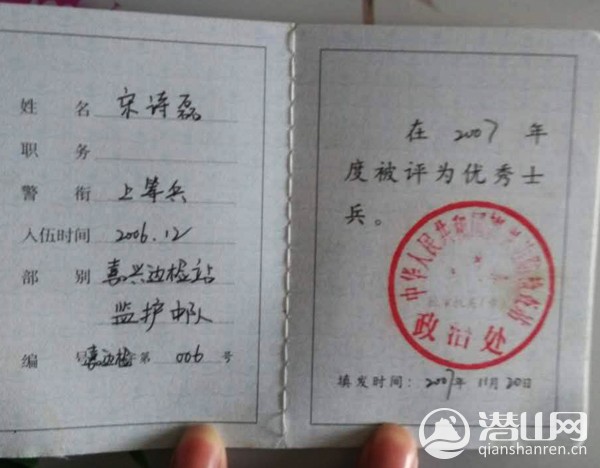 姓 名 宋诗磊
职 务
警 衔 上等兵
入伍时间 2006.12
部 别 嘉兴边检站
监护中队
编 号 嘉边检 字第 006 号
在 2007 年
度被评为优秀士
兵。
中华人民共和国嘉兴边防检查站
政治处
填发时间：2007年 11月 20日
潜山网
qianshanren.cn